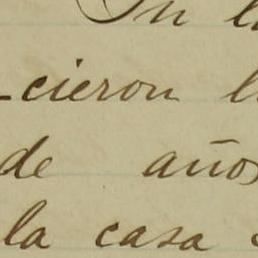 In l
cieron l
de años
la casa